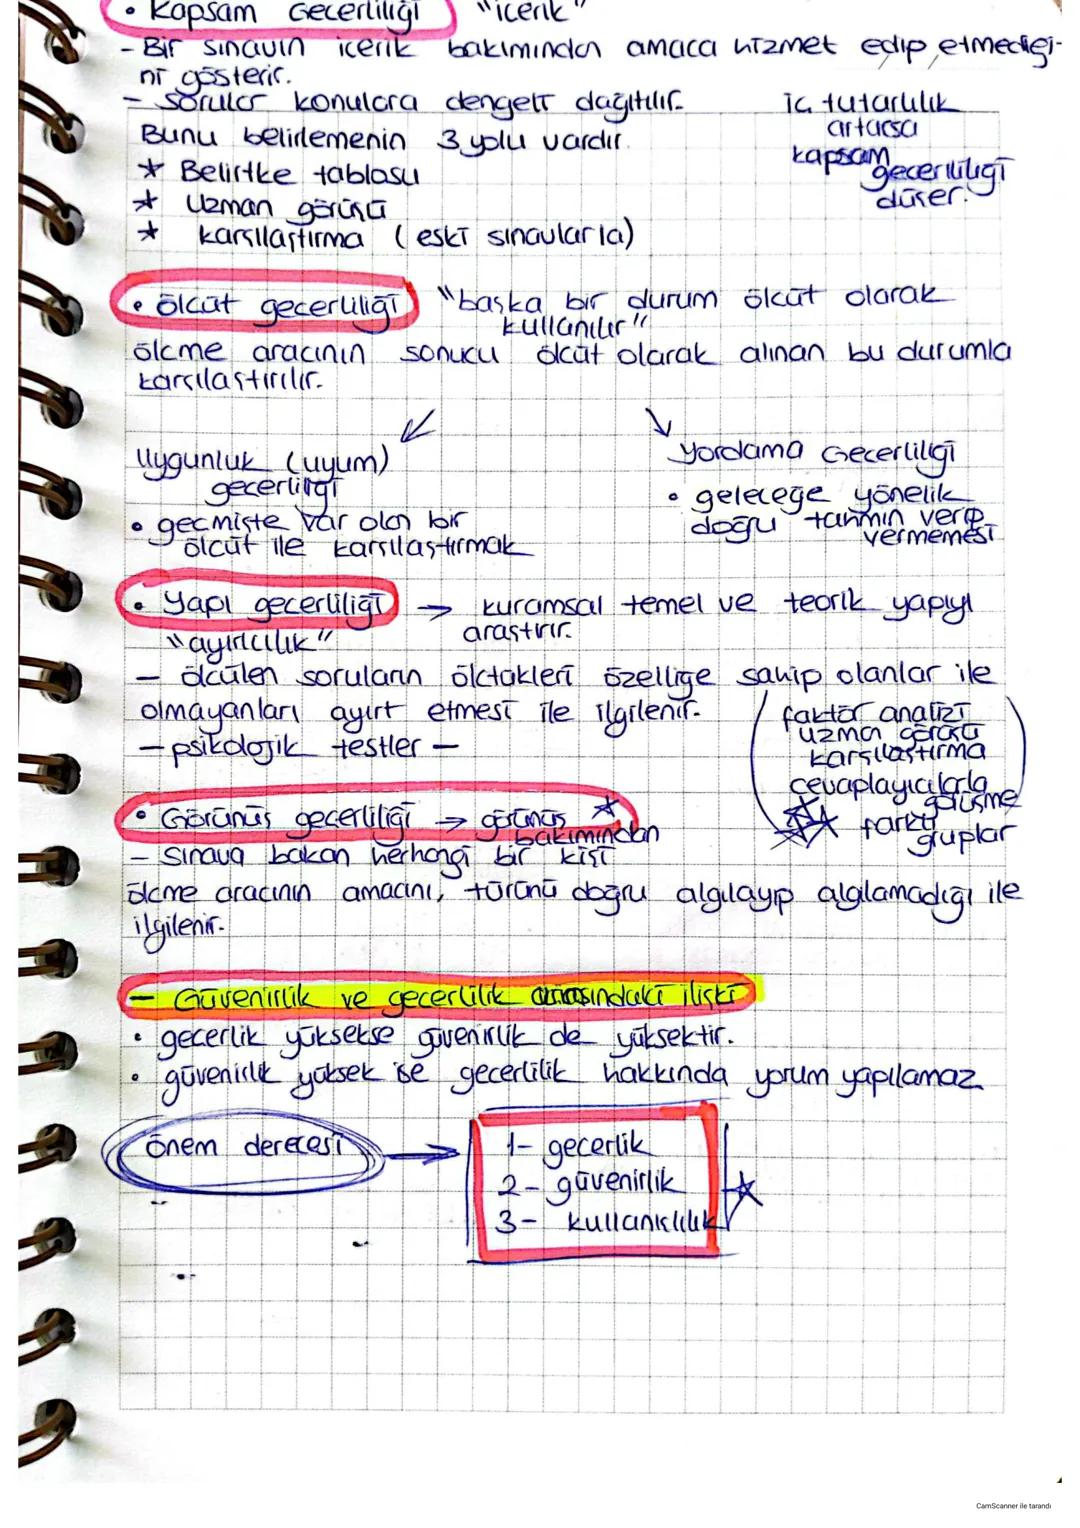 • Kapsam Gecerliliği "icerik"
- Bir sınavın icerik bakımından amaca hizmet edip etmediği-
ni gösterir.
- Sorular konulara dengeli dağıtılır.
Bunu belirlemenin 3 yolu vardır.
* Belirtke tablosu
* Uzman görüşü
* karşılaştırma (eski sınavlarla)
iç tutarlılık
artarsa
kapsam
gecerliliği
düşer.
• ölcüt gecerliliği "başka bir durum ölcüt olarak
kullanılır"
ölcme aracının sonucu ölcüt olarak alınan bu durumla
karşılaştırılır.
Uygunluk (uyum)
gecerliği
• geçmişte var olan bir
ölcüt ile karşılaştırmak
Yordama Gecerliliği
• geleceğe yönelik
doğru tahmin verip
vermemesi
• Yapı gecerliliği → kuramsal temel ve teorik yapıyı
araştırır.
"ayırıcılık"
- ölcülen soruların ölçtükleri özelliğe sahip olanlar ile
olmayanları ayırt etmesi ile ilgilenir.
- psikolojik testler -
faktör analizi
uzman görüşü
karşılaştırma
cevaplayıcılarla
görüşme
farklı
gruplar
• Görünüş gecerliliği → görünüş
bakımından
- Sınava bakan herhangi bir kişi
ölcme aracının amacını, türünü doğru algılayıp algılamadığı ile
ilgilenir.
- Güvenirlik ve gecerlilik arasındaki ilişki
• gecerlik yüksekse güvenirlik de yüksektir.
• güvenirlik yüksek ise gecerlilik hakkında yorum yapılamaz.
önem derecesi →
1- gecerlik
2- güvenirlik
3- kullanışlılık
CamScanner ile tarandı